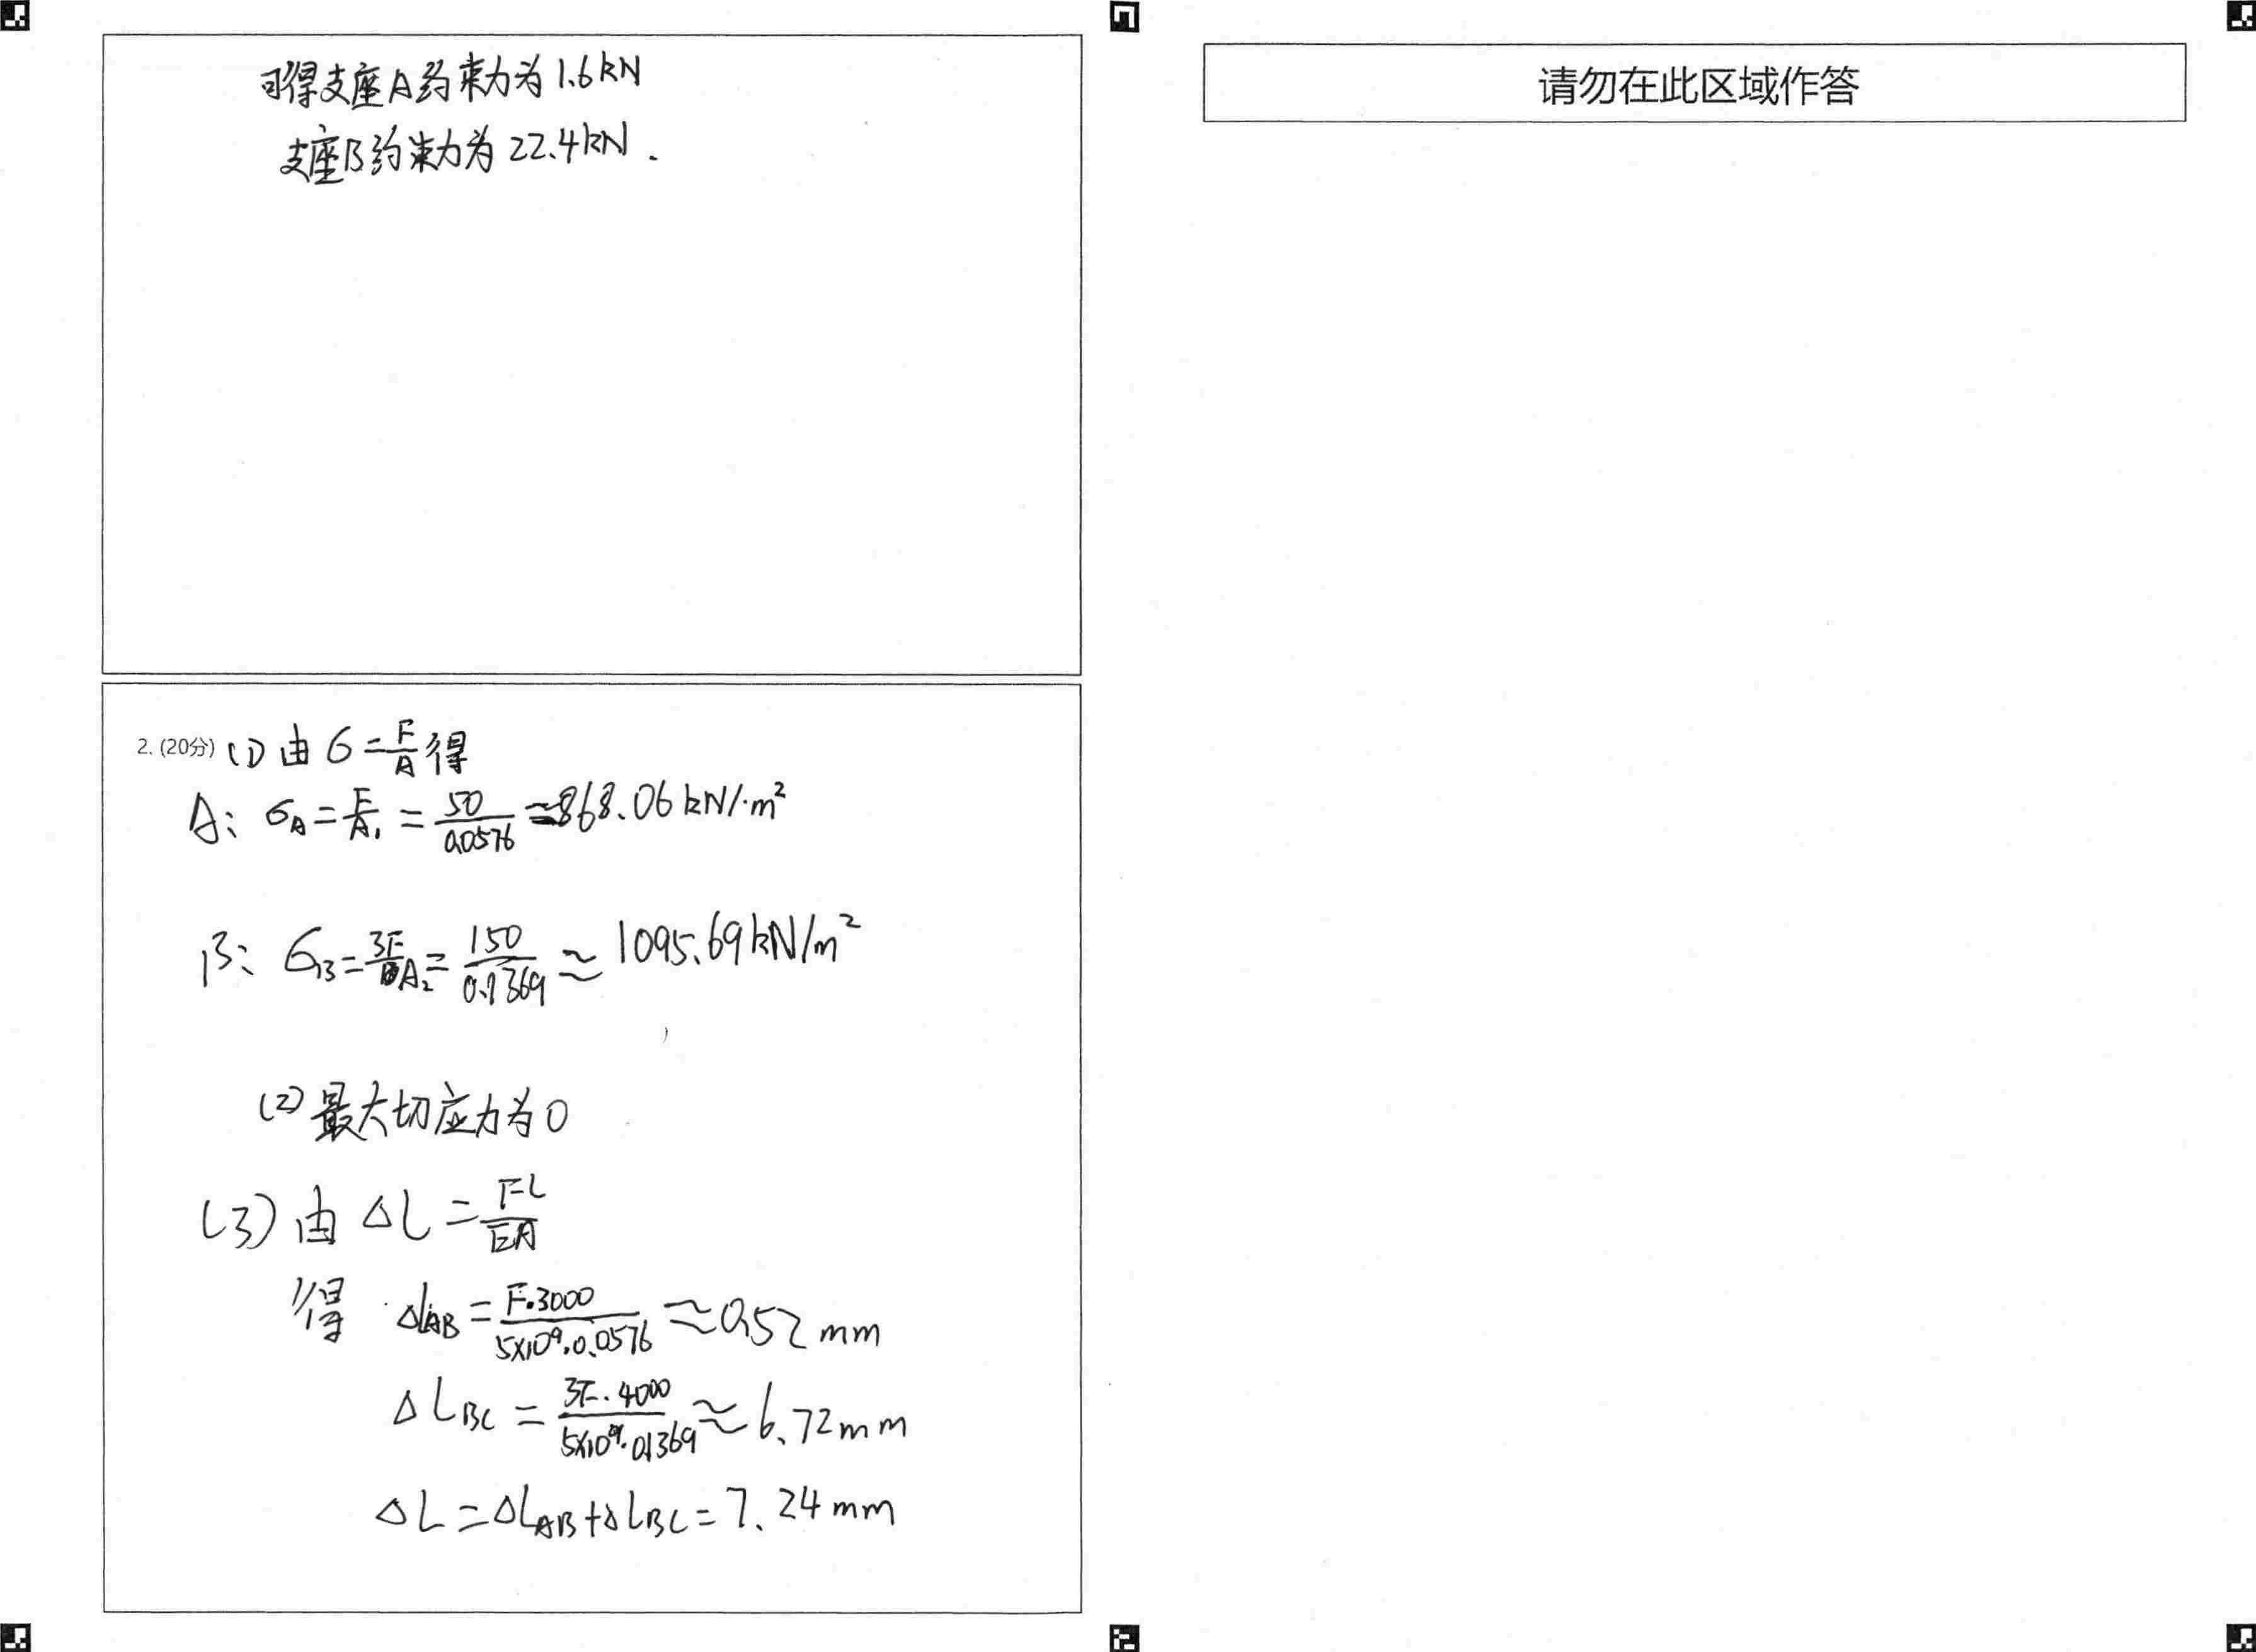 可得支座A约束力为1.6kN
支座B约束力为22.4kN.
2. (20分) (1) 由 σ=F/A 得
A: σA=F/A₁=50/0.0576≈868.06kN/·m²
B: σB=3F/A₂=150/0.1369≈1095.69kN/m²
(2) 最大切应力为0
(3) 由 ΔL=FL/EA
得 ΔLAB=F·3000/5×10⁹·0.0576≈0.52mm
ΔLBC=3F·4000/5×10⁹·0.1369≈6.72mm
ΔL=ΔLAB+ΔLBC=7.24mm
请勿在此区域作答